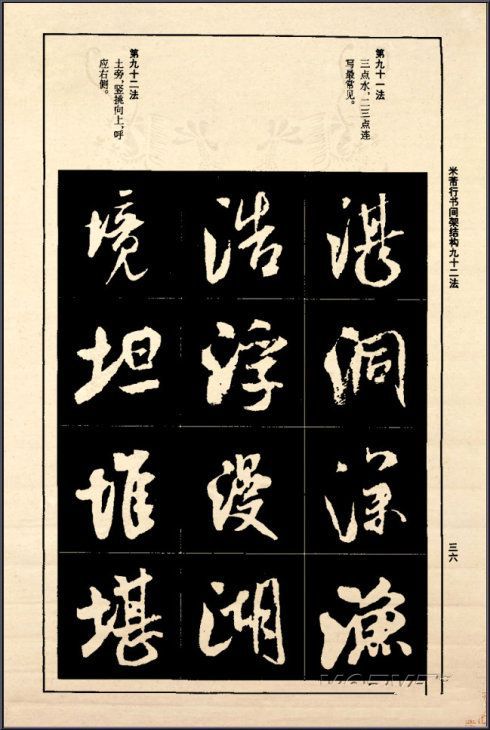 米芾行书间架结构九十二法
三六
第九十一法
三点水，二三点连
写最常见。
湛洞深渔
浩浮漫湖
第九十二法
土旁，竖挑向上，呼
应右侧。
境坦堆堪